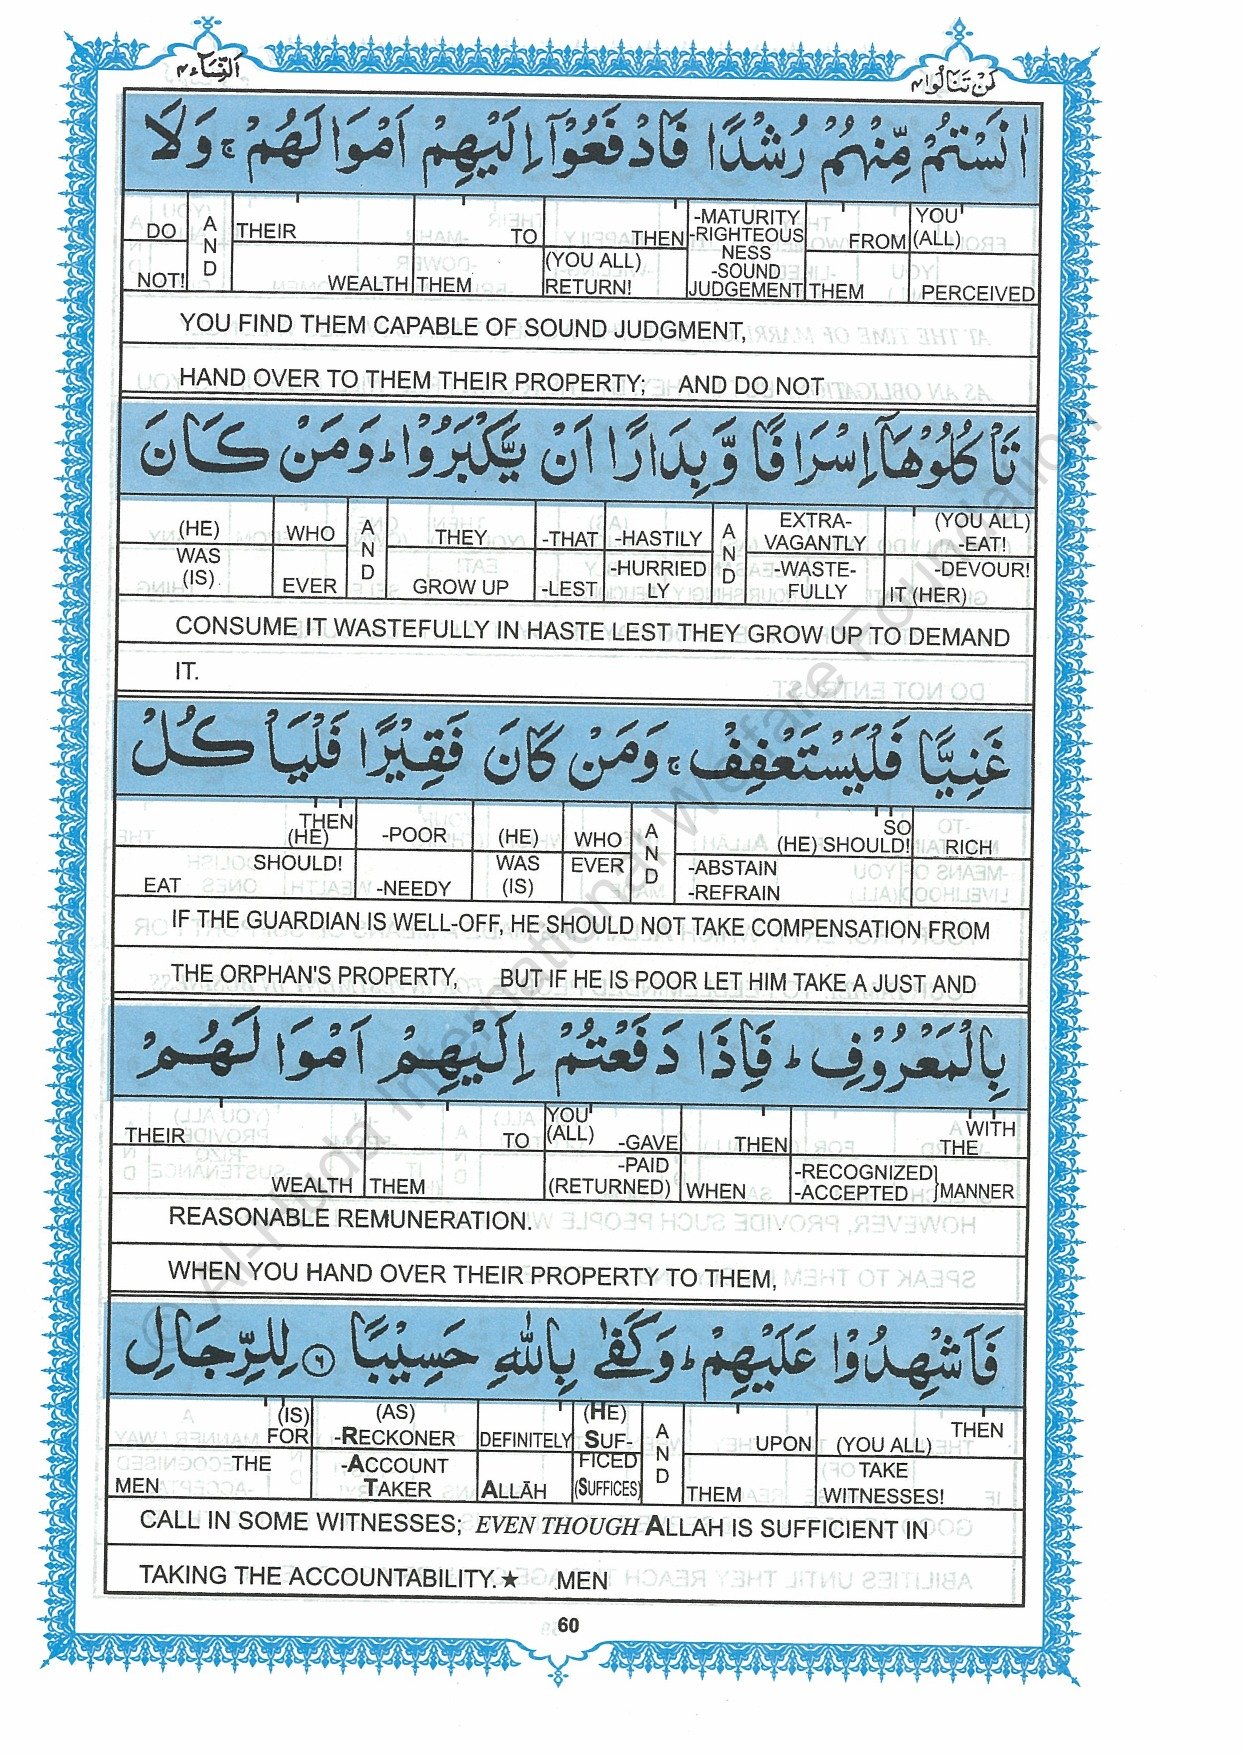 النِّسَآء ٤
لَنْ تَنَالُوا ٤
اٰنَسْتُمْ مِّنْهُمْ رُشْدًا فَادْفَعُوْٓا اِلَيْهِمْ اَمْوَالَهُمْ ۚ وَلَا
DO NOT! AND THEIR WEALTH TO THEM THEN (YOU ALL) RETURN! -MATURITY -RIGHTEOUS NESS -SOUND JUDGEMENT FROM THEM YOU (ALL) PERCEIVED
YOU FIND THEM CAPABLE OF SOUND JUDGMENT,
HAND OVER TO THEM THEIR PROPERTY; AND DO NOT
تَاْكُلُوْهَآ اِسْرَافًا وَّبِدَارًا اَنْ يَّكْبَرُوْا ؕ وَمَنْ كَانَ
(HE) WAS (IS). WHO EVER AND THEY GROW UP -THAT -LEST -HASTILY -HURRIED LY AND EXTRA- VAGANTLY -WASTE- FULLY (YOU ALL) -EAT! -DEVOUR! IT (HER)
CONSUME IT WASTEFULLY IN HASTE LEST THEY GROW UP TO DEMAND
IT.
غَنِيًّا فَلْيَسْتَعْفِفْ ۚ وَمَنْ كَانَ فَقِيْرًا فَلْيَاْكُلْ
THEN (HE) SHOULD! EAT -POOR -NEEDY (HE) WAS (IS) WHO EVER AND SO (HE) SHOULD! -ABSTAIN -REFRAIN RICH
IF THE GUARDIAN IS WELL-OFF, HE SHOULD NOT TAKE COMPENSATION FROM
THE ORPHAN'S PROPERTY, BUT IF HE IS POOR LET HIM TAKE A JUST AND
بِالْمَعْرُوْفِ ؕ فَاِذَا دَفَعْتُمْ اِلَيْهِمْ اَمْوَالَهُمْ
THEIR WEALTH TO THEM YOU (ALL) -GAVE -PAID (RETURNED) THEN WHEN WITH THE -RECOGNIZED -ACCEPTED MANNER
REASONABLE REMUNERATION.
WHEN YOU HAND OVER THEIR PROPERTY TO THEM,
فَاَشْهِدُوْا عَلَيْهِمْ ؕ وَكَفٰى بِاللّٰهِ حَسِيْبًا ۶ لِلرِّجَالِ
(IS) FOR THE MEN (AS) -RECKONER -ACCOUNT TAKER DEFINITELY ALLĀH (HE) SUF- FICED (SUFFICES) AND UPON THEM THEN (YOU ALL) TAKE WITNESSES!
CALL IN SOME WITNESSES; EVEN THOUGH ALLAH IS SUFFICIENT IN
TAKING THE ACCOUNTABILITY.★ MEN
60
© Al-Huda International Welfare Foundation